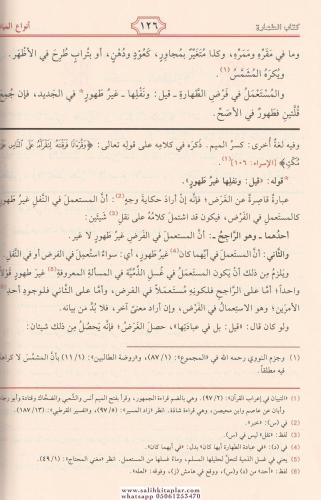 كتاب الطهارة
١٢٦
أنواع المياه
وما في مَقَرِّه ومَمَرِّه، وكذا متغيّر بمجاورٍ، كعُودٍ ودُهْنٍ، أو بترابٍ طُرِحَ في الأظهَر.
ويكرَه المُشَمَّسُ(١).
والمُستعمَلُ في فَرْضِ الطَّهارة ـ قيل: ونَفْلِها ـ غيرُ طَهورٍ* في الجديد، فإن جُمِعَ
قُلَّتَينِ فطَهورٌ في الأصحِّ.
وفيه لغةٌ أُخرى: كسرُ الميم. ذكرَه في كلامِه على قولِه تعالى: ﴿وَقُرْءَانًا فَرَقْنَٰهُ لِتَقْرَأَهُ عَلَى النَّاسِ عَلَىٰ
مُكْثٍ﴾ [الإسراء: ١٠٦](١).
*قوله: «قيل: ونفلِها غيرُ طهورٍ».
عبارةٌ قاصرةٌ عن الغَرَضِ؛ فإنَّه إنْ أرادَ حكايةَ وجهٍ(2): أنَّ المستعملَ في النَّفلِ غيرُ طهورٍ
كالمستعملِ في الفَرْضِ، فيكون قد اشتملَ كلامُه على نقلِ(3) شيئَين:
أحدُهما ـ وهو الرَّاجحُ ـ: أنَّ المستعملَ في الفَرْضِ غيرُ طَهورٍ لا غير.
والثَّاني: أنَّ المستعملَ في أيِّهما كان(4) غيرُ طهورٍ، أي: سواءٌ استُعملَ في الفرضِ أو في النَّفلِ.
ويلزمُ من ذلك أنْ يكون المستعملُ في غُسلِ الذِّمِّيَّة في المسألةِ المعروفةِ(5) غيرَ طهورٍ قَولاً
واحداً؛ أمَّا على الرَّاجحِ فلكونِه مُستعمَلاً في الفرضِ، وأمَّا على الثَّاني فلوجودِ أحدِ(6)
الأمرَينِ؛ وهو الاستعمالُ في الفَرْضِ، وإن أرادَ معنىً آخر، فلا بُدَّ من بيانِه.
ولو كان قال: «قيل: بل في عبادتِها»، حصلَ الغَرَضُ؛ فإنَّه يَحصُلُ من ذلك شيئان:
(١) وجزم النووي رحمه الله في «المجموع»: (١/ ٨٧)، و«روضة الطالبين»: (١/ ١١) بأنَّ المشمَّس لا كراهة
فيه مطلقاً.
(1) «التبيان في إعراب القرآن»: (٢/ ٩٧). وهي بالضم قراءة الجمهور، وقرأ بفتح الميم أنس والشعبي والضحَّاك وقتادة وأبو رجاء
وأبان عن عاصم وابن محيصن، وهي قراءة شاذة. انظر «زاد المسير»: (٥/ ٩٧)، و«تفسير القرطبي»: (١٣/ ١٨٧).
(2) في (س): «خبر».
(3) لفظ: «نقل» ليس في (س).
(4) في (د): «في عبادة الطهارة أيها كان» بدل: «في أيهما كان».
(5) يعني في غسل الذمية لتحلَّ لحليلها المسلم، وماء غسلها من المستعمل. انظر «مغني المحتاج»: (١/ ٤٩).
(6) لفظ: «أحد» من (د) و(س)، ووقع في هامش (ز)، وفوقه: «لعله».
www.salihkitaplar.com
whatsapp 05061253470